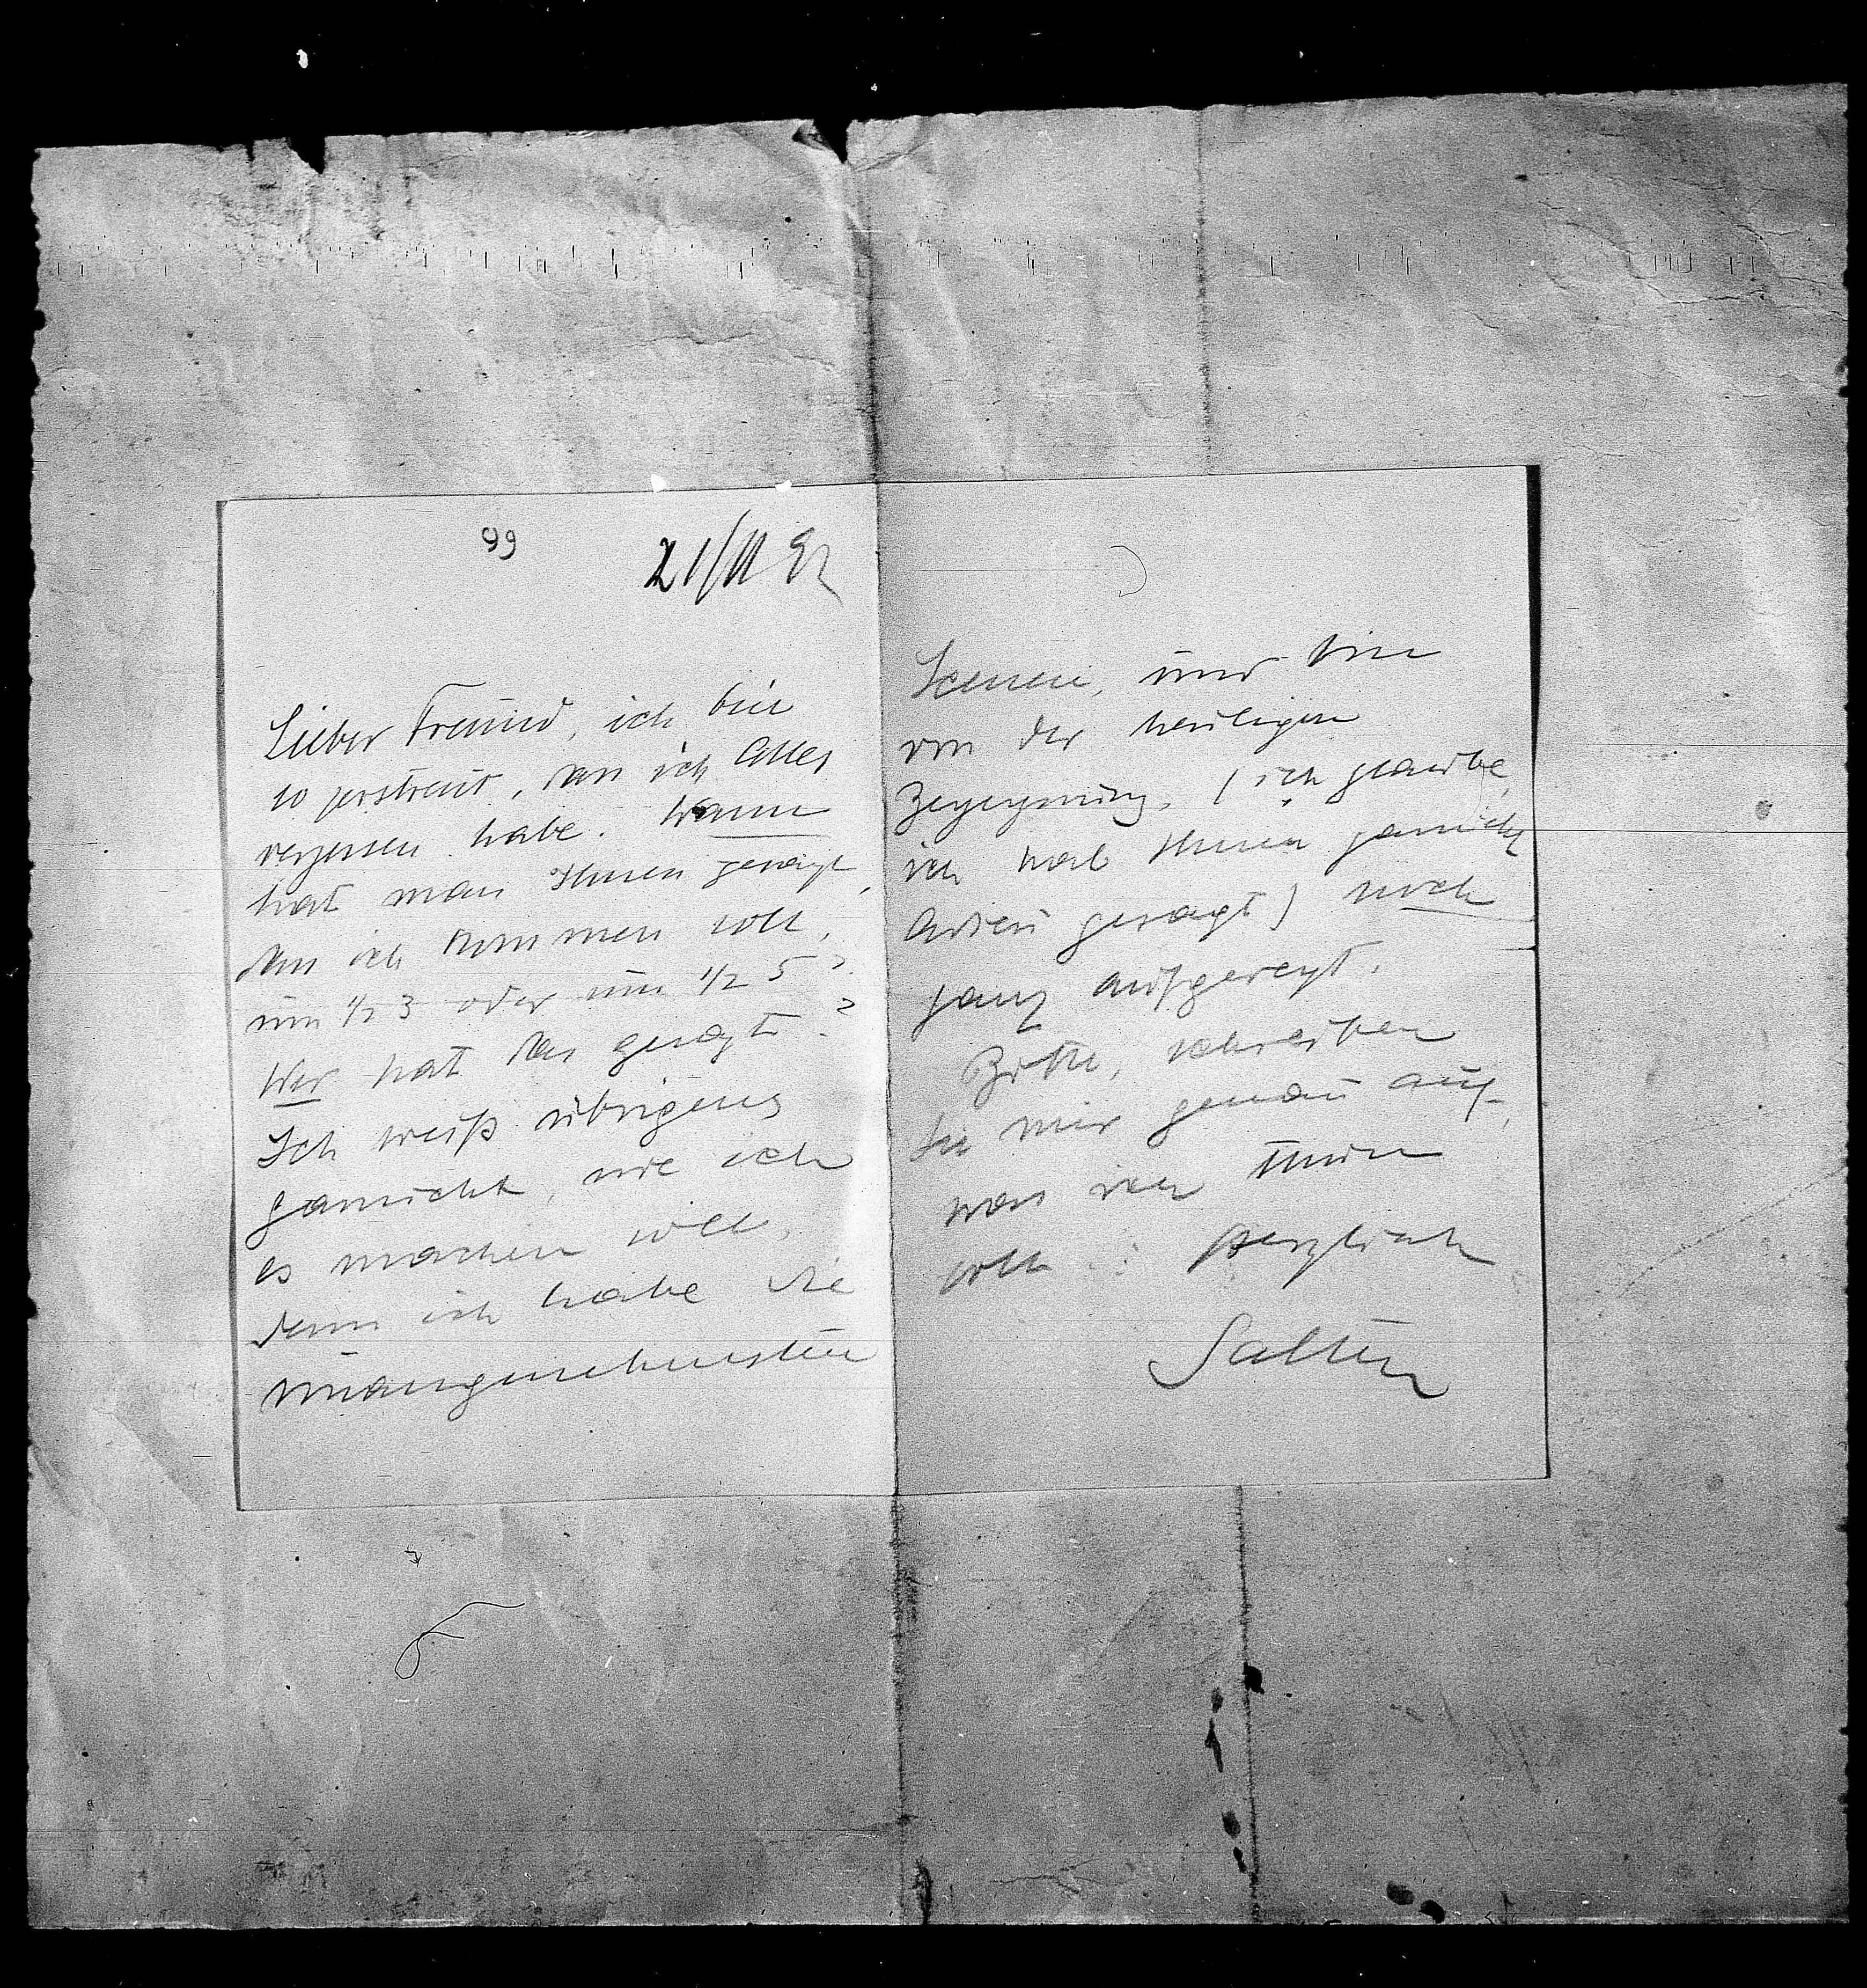 99
21/11 92
Lieber Freund, ich bin
so zerstreut, dass ich Alles
vergessen habe. Wann
hat man Ihnen gesagt,
dass ich kommen soll,
um 1/2 3 oder um 1/2 5?
Wer hat das gesagt?
Ich weiß übrigens
garnicht, wie ich
es machen soll,
denn ich habe die
unangenehmsten
Scenen, und bin
von der heutigen
Begegnung, (ich glaube,
ich hab Ihnen garnicht
Adieu gesagt) noch
ganz aufgeregt.
Bitte, schreiben
Sie mir genau auf,
was ich thun
soll. Herzlich
Salten